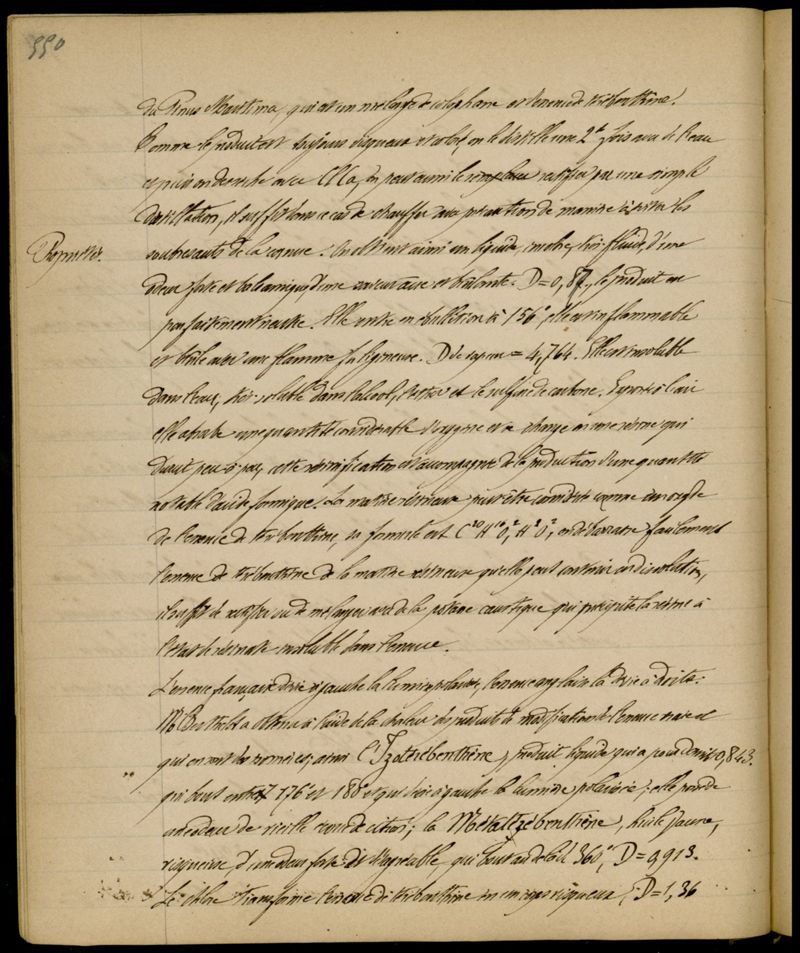 550
du Pinus Maritima, qui est un mélange de colophane et d'essence de térébenthine.
Comme le produit est toujours visqueux et coloré, on le distille une 2e fois avec de l'eau
et puis on dessèche avec ClCa, on peut aussi le remplacer rectifier par une simple
distillation, il suffit dans ce cas de chauffer avec précaution de manière à éviter les
soubresauts de la cornue. On obtient ainsi un liquide incolore, très fluide, d'une
Propriétés.
odeur forte et balsamique, d'une saveur âcre et brûlante. D=0,87, le produit est
parfaitement neutre. Elle entre en ébullition à 156°, elle est inflammable
et brûle avec une flamme fuligineuse. D de vapeur = 4,764. Elle est insoluble
dans l'eau, très soluble dans l'alcool, l'éther et le sulfure de carbone. Exposée à l'air
elle absorbe une quantité considérable d'oxygène et se change en une résine qui
durcit peu à peu, cette résinification est accompagnée de la production d'une quantité
notable d'acide formique. La matière résineuse peut être considérée comme un oxyde
de l'essence de térébenthine, sa formule est C²⁰H¹⁶O², H²O², on débarrasse facilement
l'essence de térébenthine de la matière résineuse qu'elle peut contenir en dissolution,
il suffit de rectifier ou de mélanger avec de la potasse caustique qui précipite la résine à
l'état de résinate insoluble dans l'essence.
L'essence française dévie à gauche la lumière polarisée, l'essence anglaise la dévie à droite.
Mr Berthelot a obtenu à l'aide de la chaleur des produits de modification de l'essence
qui en sont des isomères; ainsi l'Izotérébenthène, produit liquide qui a pour densité 0,843.
qui bout entre 176° et 180° et qui dévie à gauche la lumière polarisée; elle possède
une odeur de vieille essence de citron; la Métatérébenthène, huile jaune,
visqueuse d'une odeur forte et désagréable, qui bout au delà de 360°, D=0,913.
Le chlore transforme l'essence de térébenthine en un corps visqueux, D=1,36